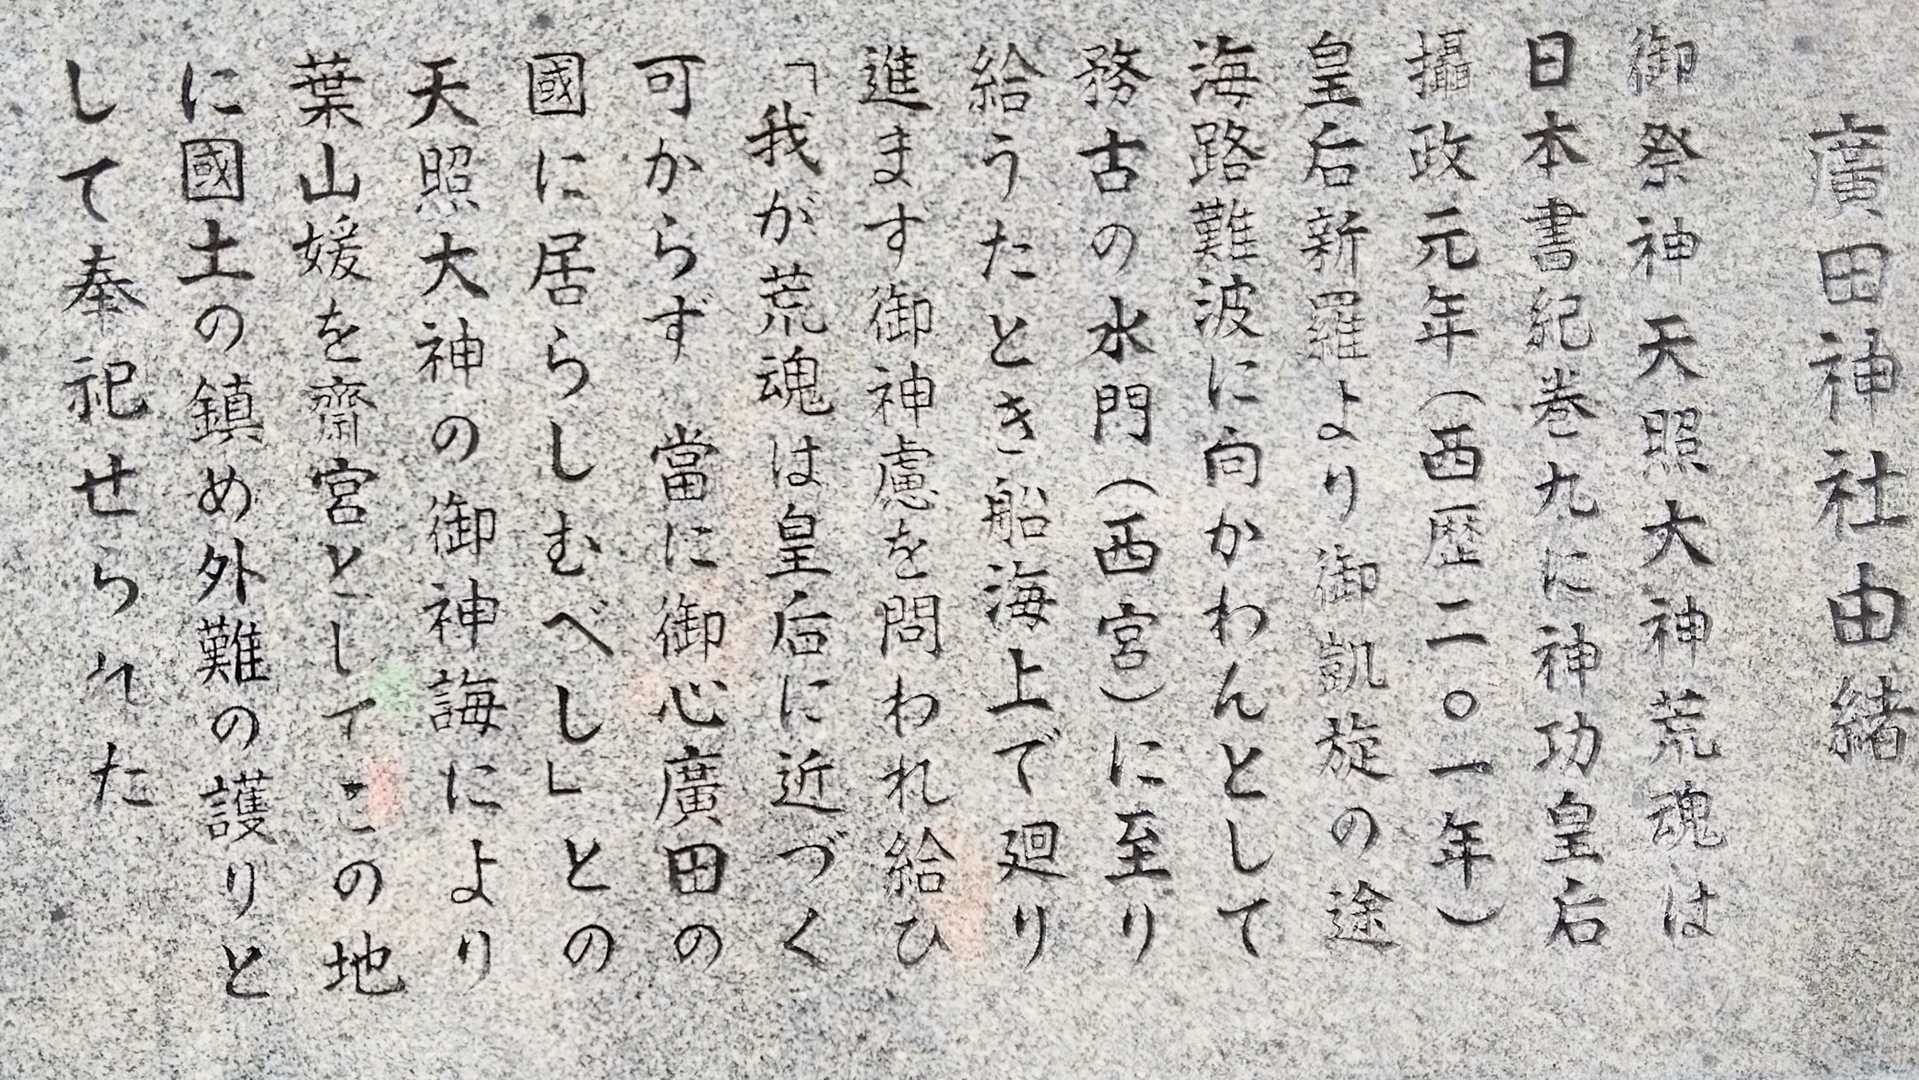 廣田神社由緒
御祭神天照大神荒魂は
日本書紀巻九に神功皇后
攝政元年(西歴二〇一年)
皇后新羅より御凱旋の途
海路難波に向かわんとして
務古の水門(西宮)に至り
給うたとき船海上で廻り
進ます御神慮を問われ給ひ
「我が荒魂は皇后に近づく
可からず 當に御心廣田の
國に居らしむべし」との
天照大神の御神誨により
葉山媛を齋宮としてこの地
に國土の鎮め外難の護りと
して奉祀せられた